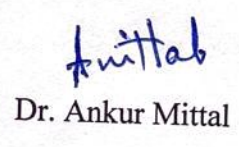 Amittal
Dr. Ankur Mittal